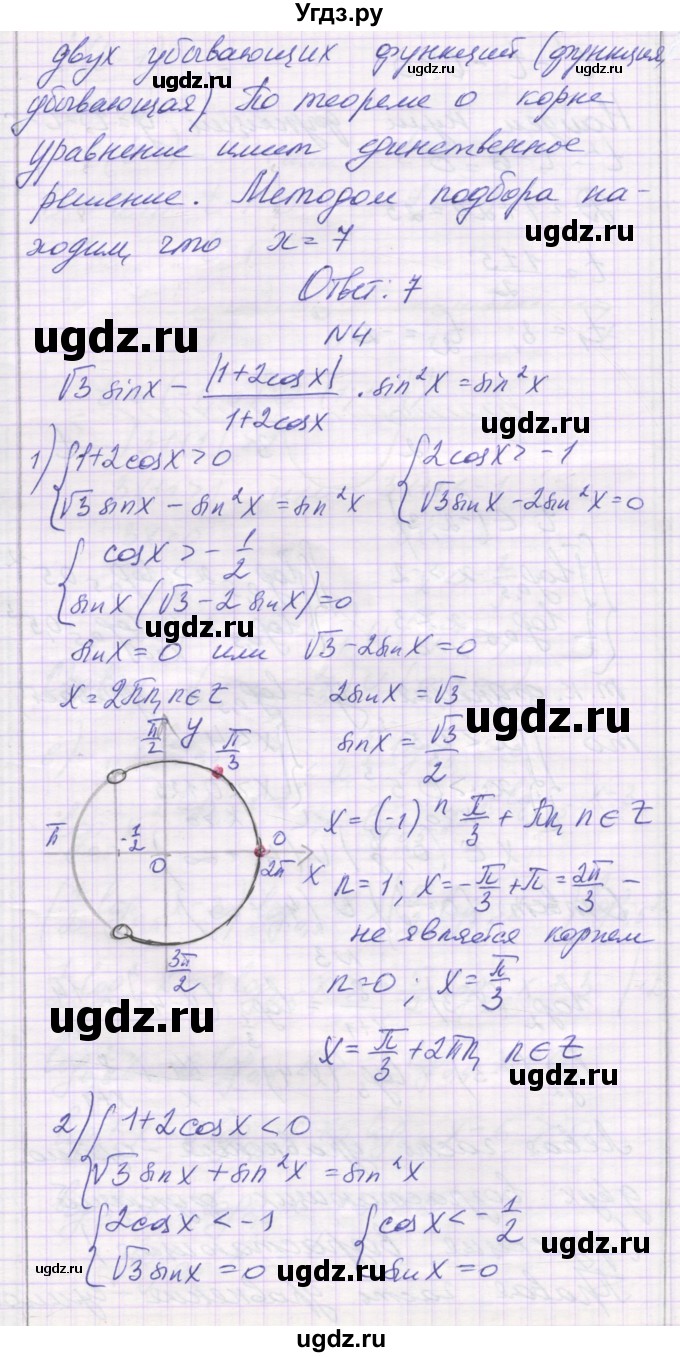 Угдз.ру
двух убывающих функций (функция,
убывающая). По теореме о корне
уравнение имеет единственное
решение. Методом подбора на-
ugdz.ru
ходим, что x = 7
Ответ: 7
ugdz.ru
N4
√3 sinx − |1+2cosx| / 1+2cosx · sin²x = sin²x
1) { 1+2cosx > 0 { 2cosx > −1
√3 sinx − sin²x = sin²x √3 sinx − 2sin²x = 0
ugdz.ru
{ cosx > −1/2
sinx (√3 − 2 sinx) = 0
ugdz.ru
sinx = 0 или √3 − 2sinx = 0
x = 2πn, n∈Z 2sinx = √3
ugdz.ru
π/2 y π/3 sinx = √3/2
x = (−1)ⁿ π/3 + πn, n∈Z
π −1/2 0 0 2π x
n = 1; x = −π/3 + π = 2π/3 −
не является корнем
3π/2 n = 0; x = π/3
ugdz.ru
x = π/3 + 2πn, n∈Z
ugdz.ru
2) { 1+2cosx < 0
√3 sinx + sin²x = sin²x
{ 2cosx < −1 { cosx < −1/2
√3 sinx = 0 sinx = 0
ugdz.ru
ugdz.ru
ugdz.ru
ugdz.ru